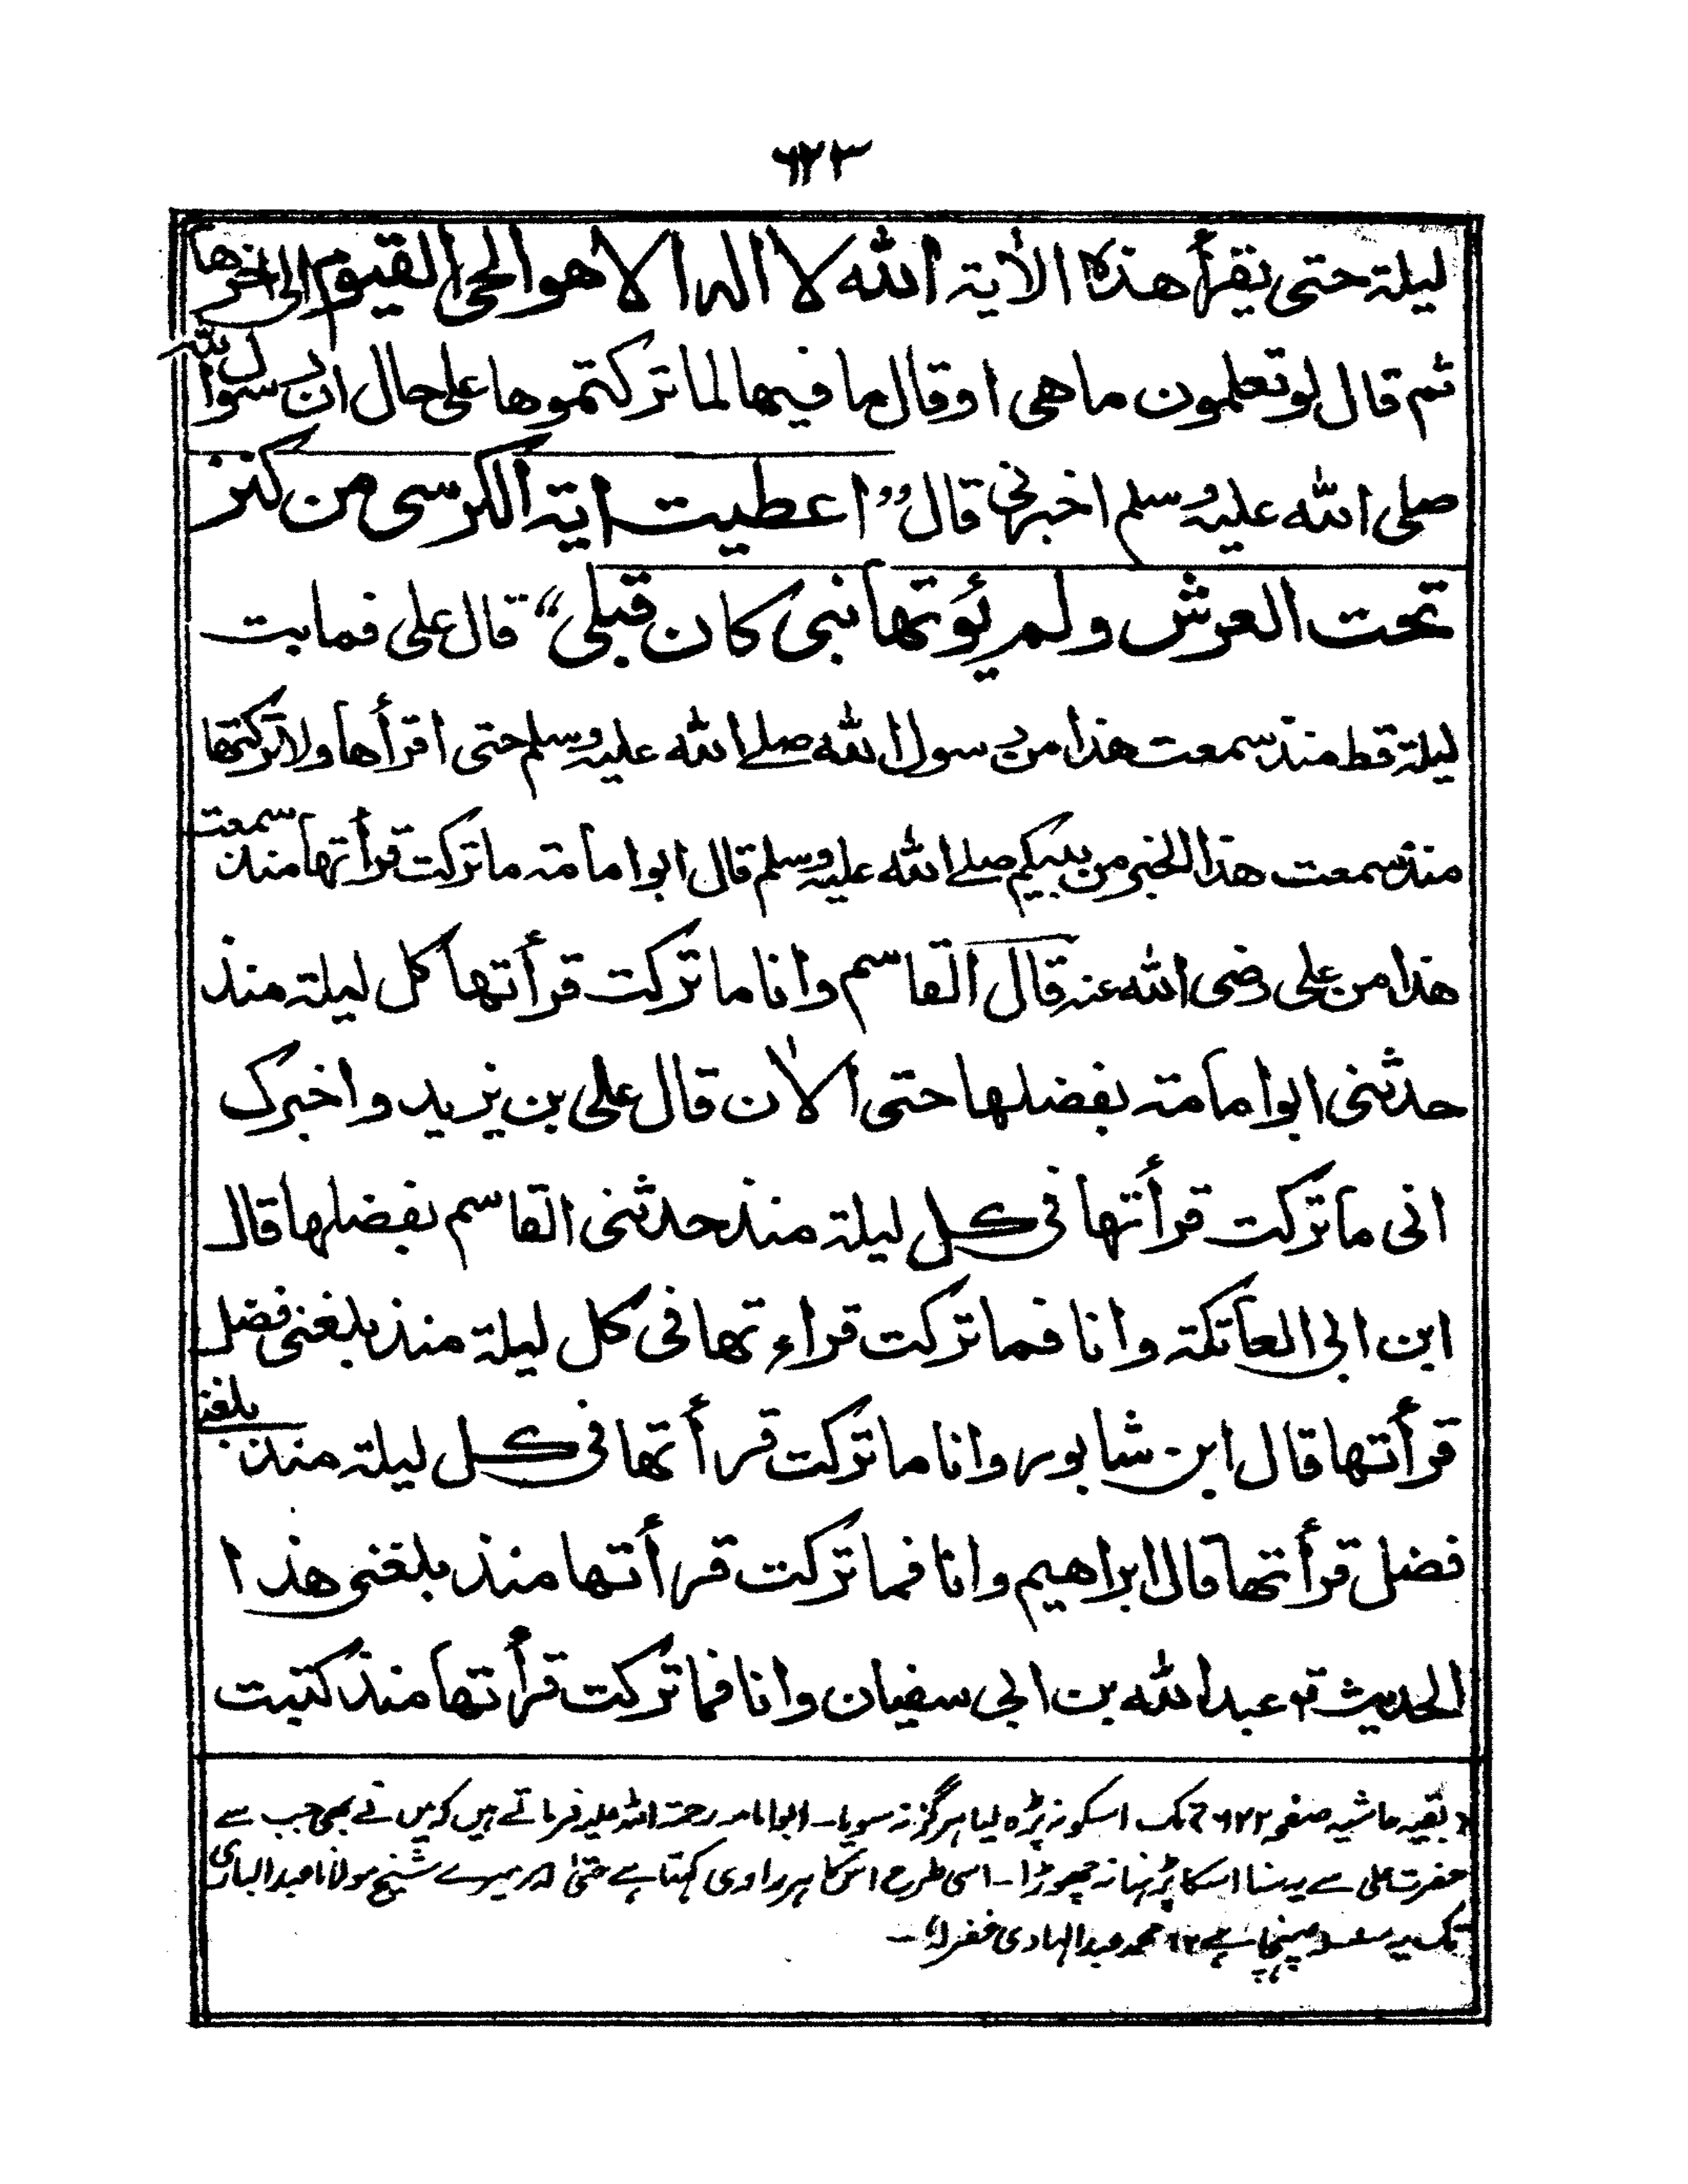 ۶۲۳
ليلة حتى يقرأ هذه الأية الله لا اله الا هو الحي القيوم الى اخرها
ثم قال لو تعلمون ما هي او قال ما فيها لما تركتموها على حال ان رسول الله
صلى الله عليه وسلم اخبرني قال ”اعطيت اية الكرسي من كنز
تحت العرش ولم يؤتها نبي كان قبلي“ قال علي فما بت
ليلة قط منذ سمعت هذا من رسول الله صلے الله عليه وسلم حتى اقرأها ولا تركتها
منذ سمعت هذا الخبر من نبيكم صلے الله عليه وسلم قال ابو امامة ما تركت قرأتها منذ سمعت
هذا من علي رضى الله عنه قال القاسم وانا ما تركت قرأتها كل ليلة منذ
حدثني ابو امامة بفضلها حتى الأن قال علي بن يزيد واخبرك
اني ما تركت قرأتها في كل ليلة منذ حدثني القاسم بفضلها قال
ابن ابي العاتكة وانا فما تركت قراءتها في كل ليلة منذ بلغني فضل
قرأتها قال ابن شابور وانا ما تركت قرأتها في كل ليلة منذ بلغني
فضل قرأتها قال ابراهيم وانا فما تركت قرأتها منذ بلغني هذا
الحديث عبد الله بن ابي سفيان وانا فما تركت قرأتها منذ كتبت
بقیہ حاشیہ صفحہ ۶۲۲ تک اسکو نہ پڑہ لیا ہرگز نہ سویا۔ ابو امامہ رحمۃ اللہ علیہ فرماتے ہیں کہ میں نے بھی جب سے
حضرت علی سے یہ سنا اسکا پڑہنا نہ چھوڑا۔ اسی طرح اس کا ہر راوی کہتا ہے حتیٰ کہ میرے شیخ مولانا عبد الباری
تک یہ پہنچا ہے ۱۲ محمد عبد الہادی غفرلہ۔